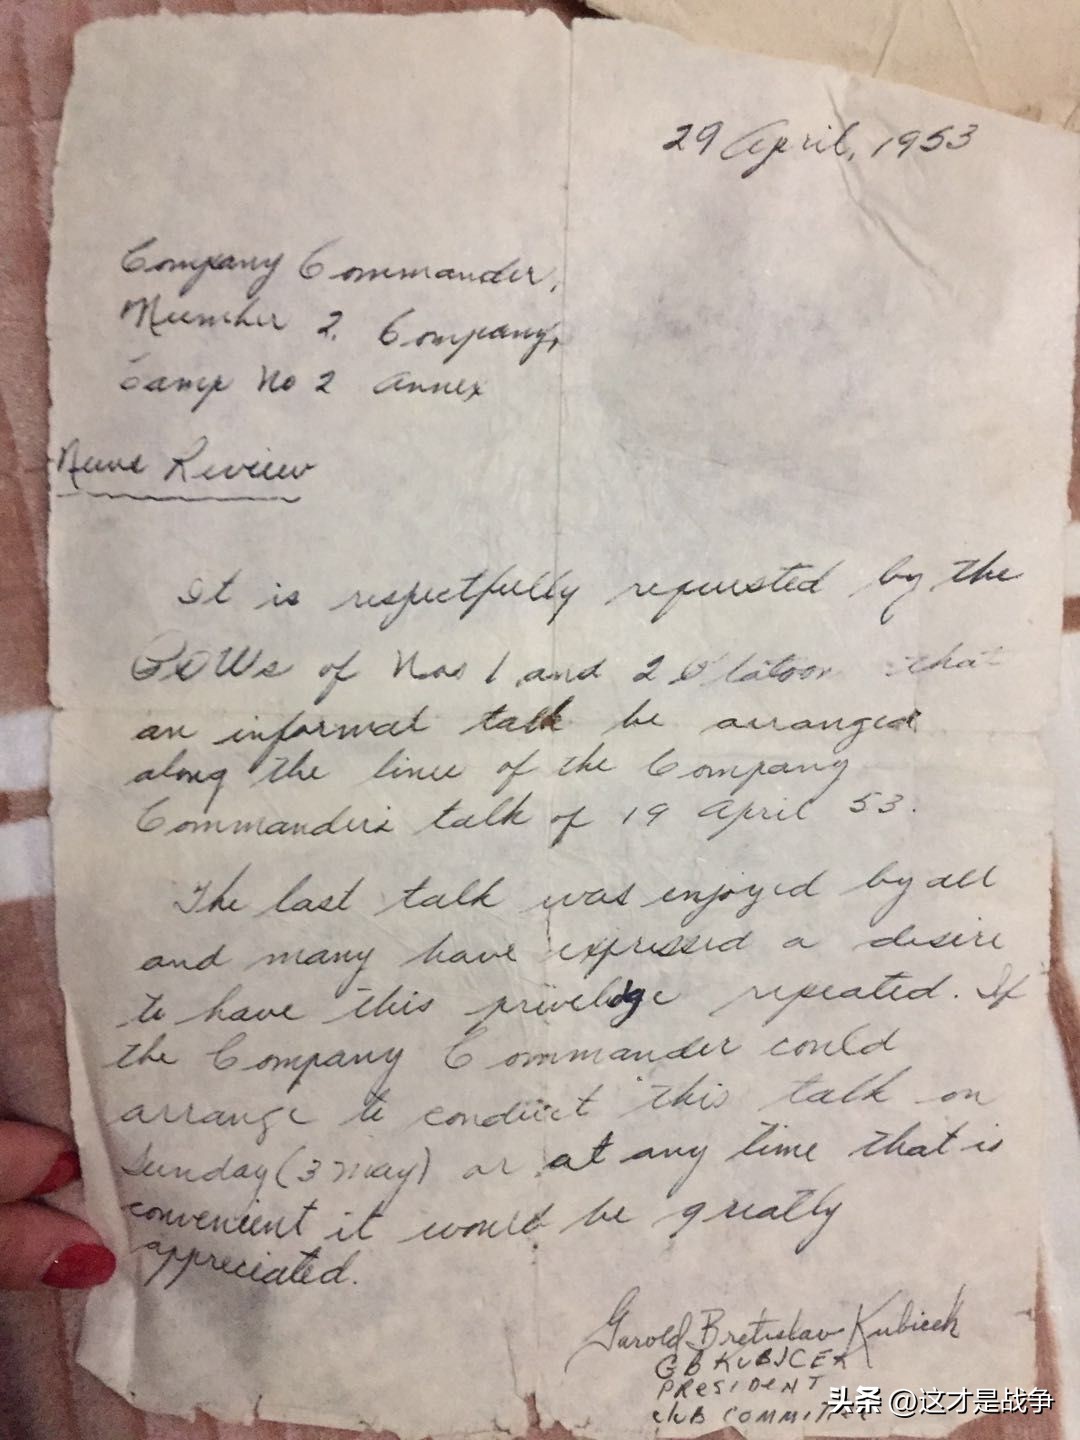 29 April, 1953
Company Commander,
Number 2. Company,
Camp No 2 Annex
News Review
It is respectfully requested by the
POWs of Nos 1 and 2 Platoon that
an informal talk be arranged
along the lines of the Company
Commander's talk of 19 April 53.
The last talk was enjoyed by all
and many have expressed a desire
to have this privelidge repeated. If
the Company Commander could
arrange to conduct this talk on
Sunday (3 May) or at any time that is
convenient it would be greatly
appreciated.
Garold Bretislav Kubicek
GB KUBICEK
PRESIDENT
CLUB COMMITTEE
头条 @这才是战争